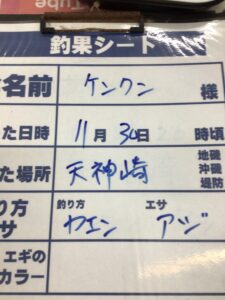 Tube
釣果シート
名前 ケンクン 様
た日時 11月30日 時頃
た場所 天神崎 地磯 沖磯 堤防
り方 釣り方 エサ
サ ウエン アジ
エギの
カラー